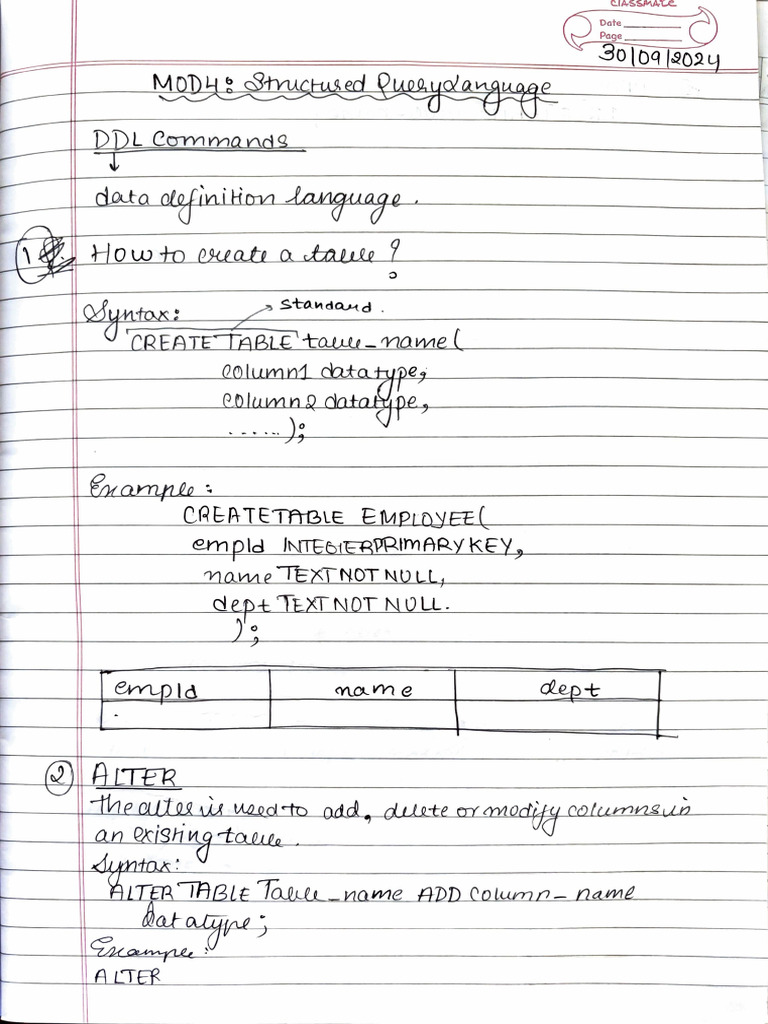 CLASSMATE
Date
Page
30/09/2024
MOD4: Structured Query Language
DDL Commands
↓
data definition language.
1 How to create a table?
Syntax: → Standard.
CREATE TABLE table_name(
column1 datatype,
column2 datatype,
......);
Example:
CREATE TABLE EMPLOYEE(
empId INTEGER PRIMARY KEY,
name TEXT NOT NULL,
dept TEXT NOT NULL.
);
empId name dept
2 ALTER
The alter is used to add, delete or modify columns in
an existing table.
Syntax:
ALTER TABLE Table_name ADD Column_name
datatype;
Example:
ALTER